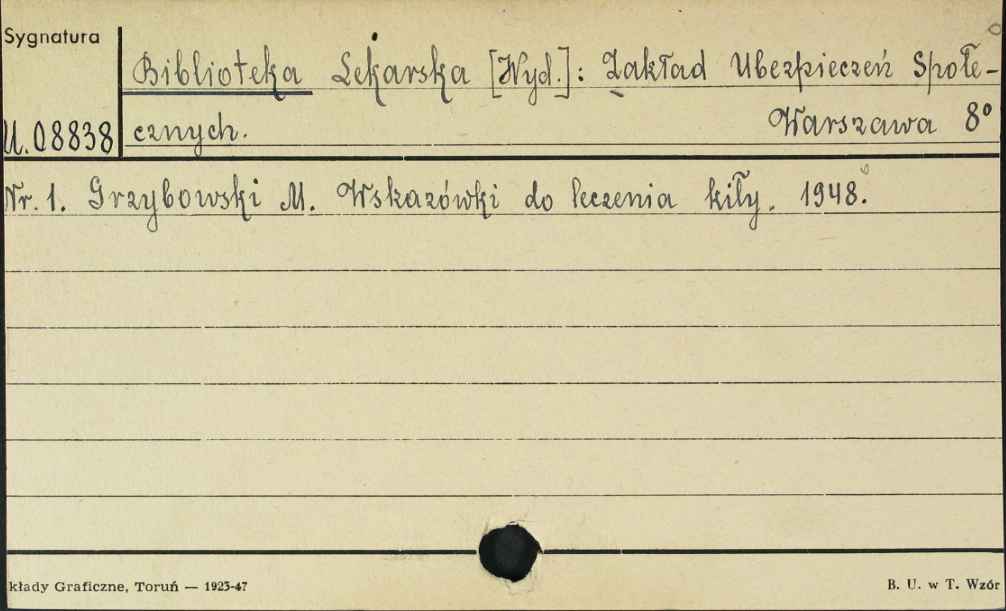 Sygnatura
Biblioteka Lekarska [Wyd.]: Zakład Ubezpieczeń Społe-
U.08838 cznych. Warszawa 8°
Nr. 1. Grzybowski M. Wskazówki do leczenia kiły. 1948.
kłady Graficzne, Toruń — 1923-47 B. U. w T. Wzór